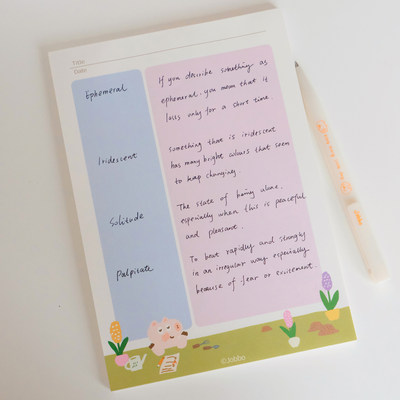 Title:
Date:
Ephemeral
If you describe something as
ephemeral, you mean that it
lasts only for a short time.
Iridescent
Something that is iridescent
has many bright colours that seem
to keep changing.
Solitude
The state of being alone,
especially when this is peaceful
and pleasant.
Palpitate
To beat rapidly and strongly
in an irregular way especially
because of fear or excitement
©Jobbo